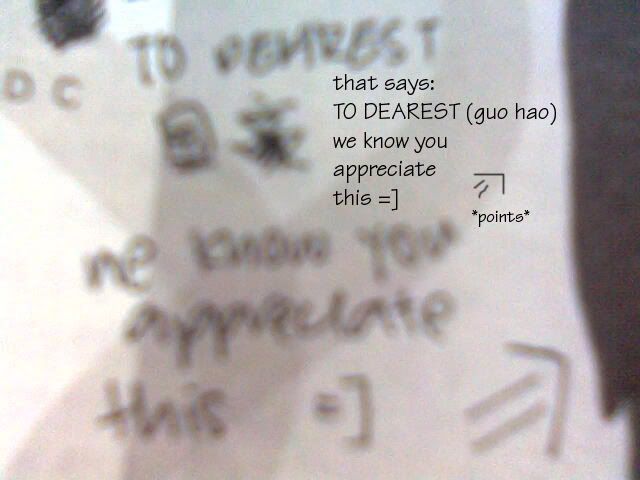 TO DEAREST
DC
国豪
that says:
TO DEAREST (guo hao)
we know you
appreciate
this =]
*points*
we know you
appreciate
this =]